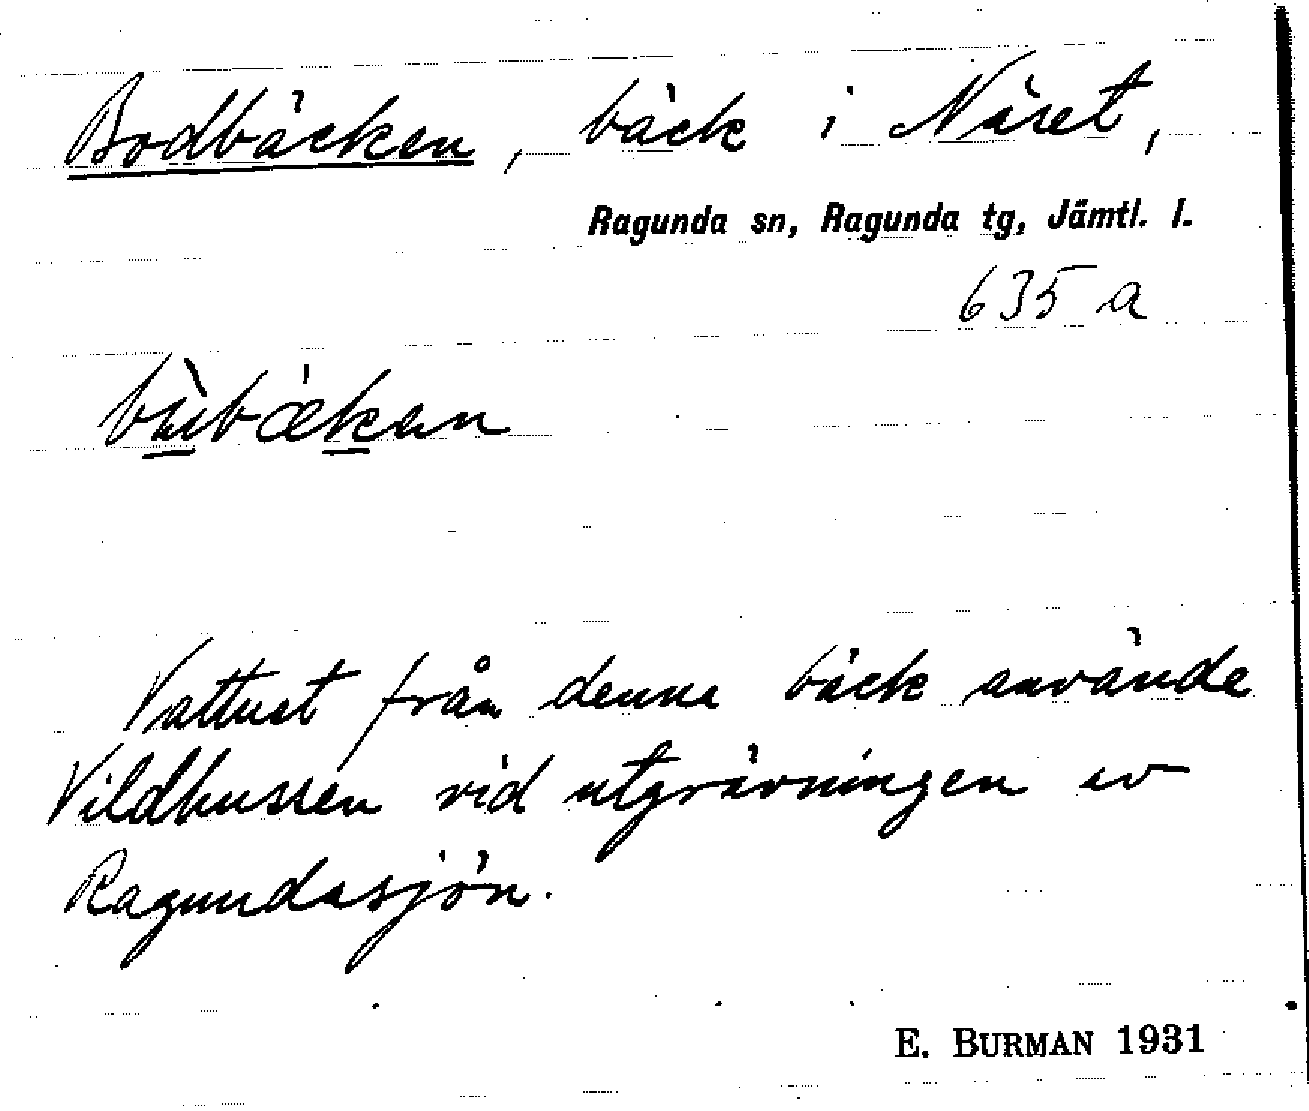 Bodbäcken, bäck i Näset,
Ragunda sn, Ragunda tg, Jämtl. l.
635 a
Vattnet från denna bäck använde
Vildhussen vid utgrävningen av
Ragundasjön.
E. BURMAN 1931